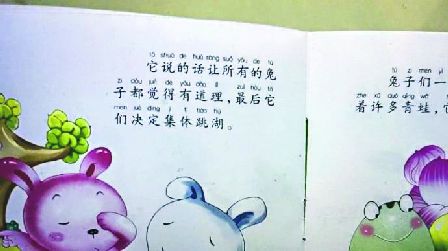 tā shuō de huà ràng suǒ yǒu de tù
它说的话让所有的兔
zi dōu jué de yǒu dào lǐ zuì hòu tā
子都觉得有道理，最后它
men jué dìng jí tǐ tiào hú
们决定集体跳湖。
tù zi men yì
兔子们一
zhe xǔ duō qīng wā
着许多青蛙，